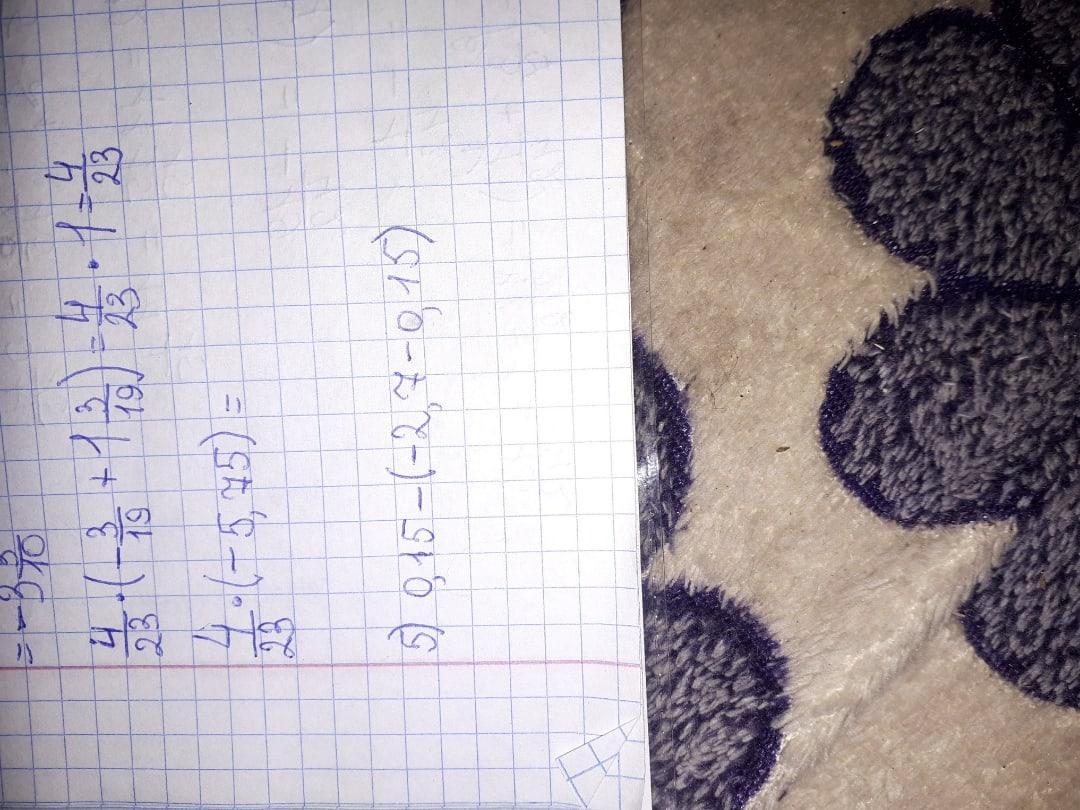 = -3 3/10
4/23 · (-3/19 + 1 3/19) = 4/23 · 1 = 4/23
4/23 · (-5,75) =
5) 0,15 - (-2,7 - 0,15)